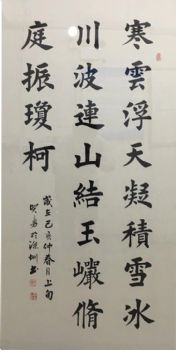 寒雲浮天凝積雪冰
川波連山結玉巗脩
庭振瓊柯
歲在己亥仲春月上旬
於深圳書